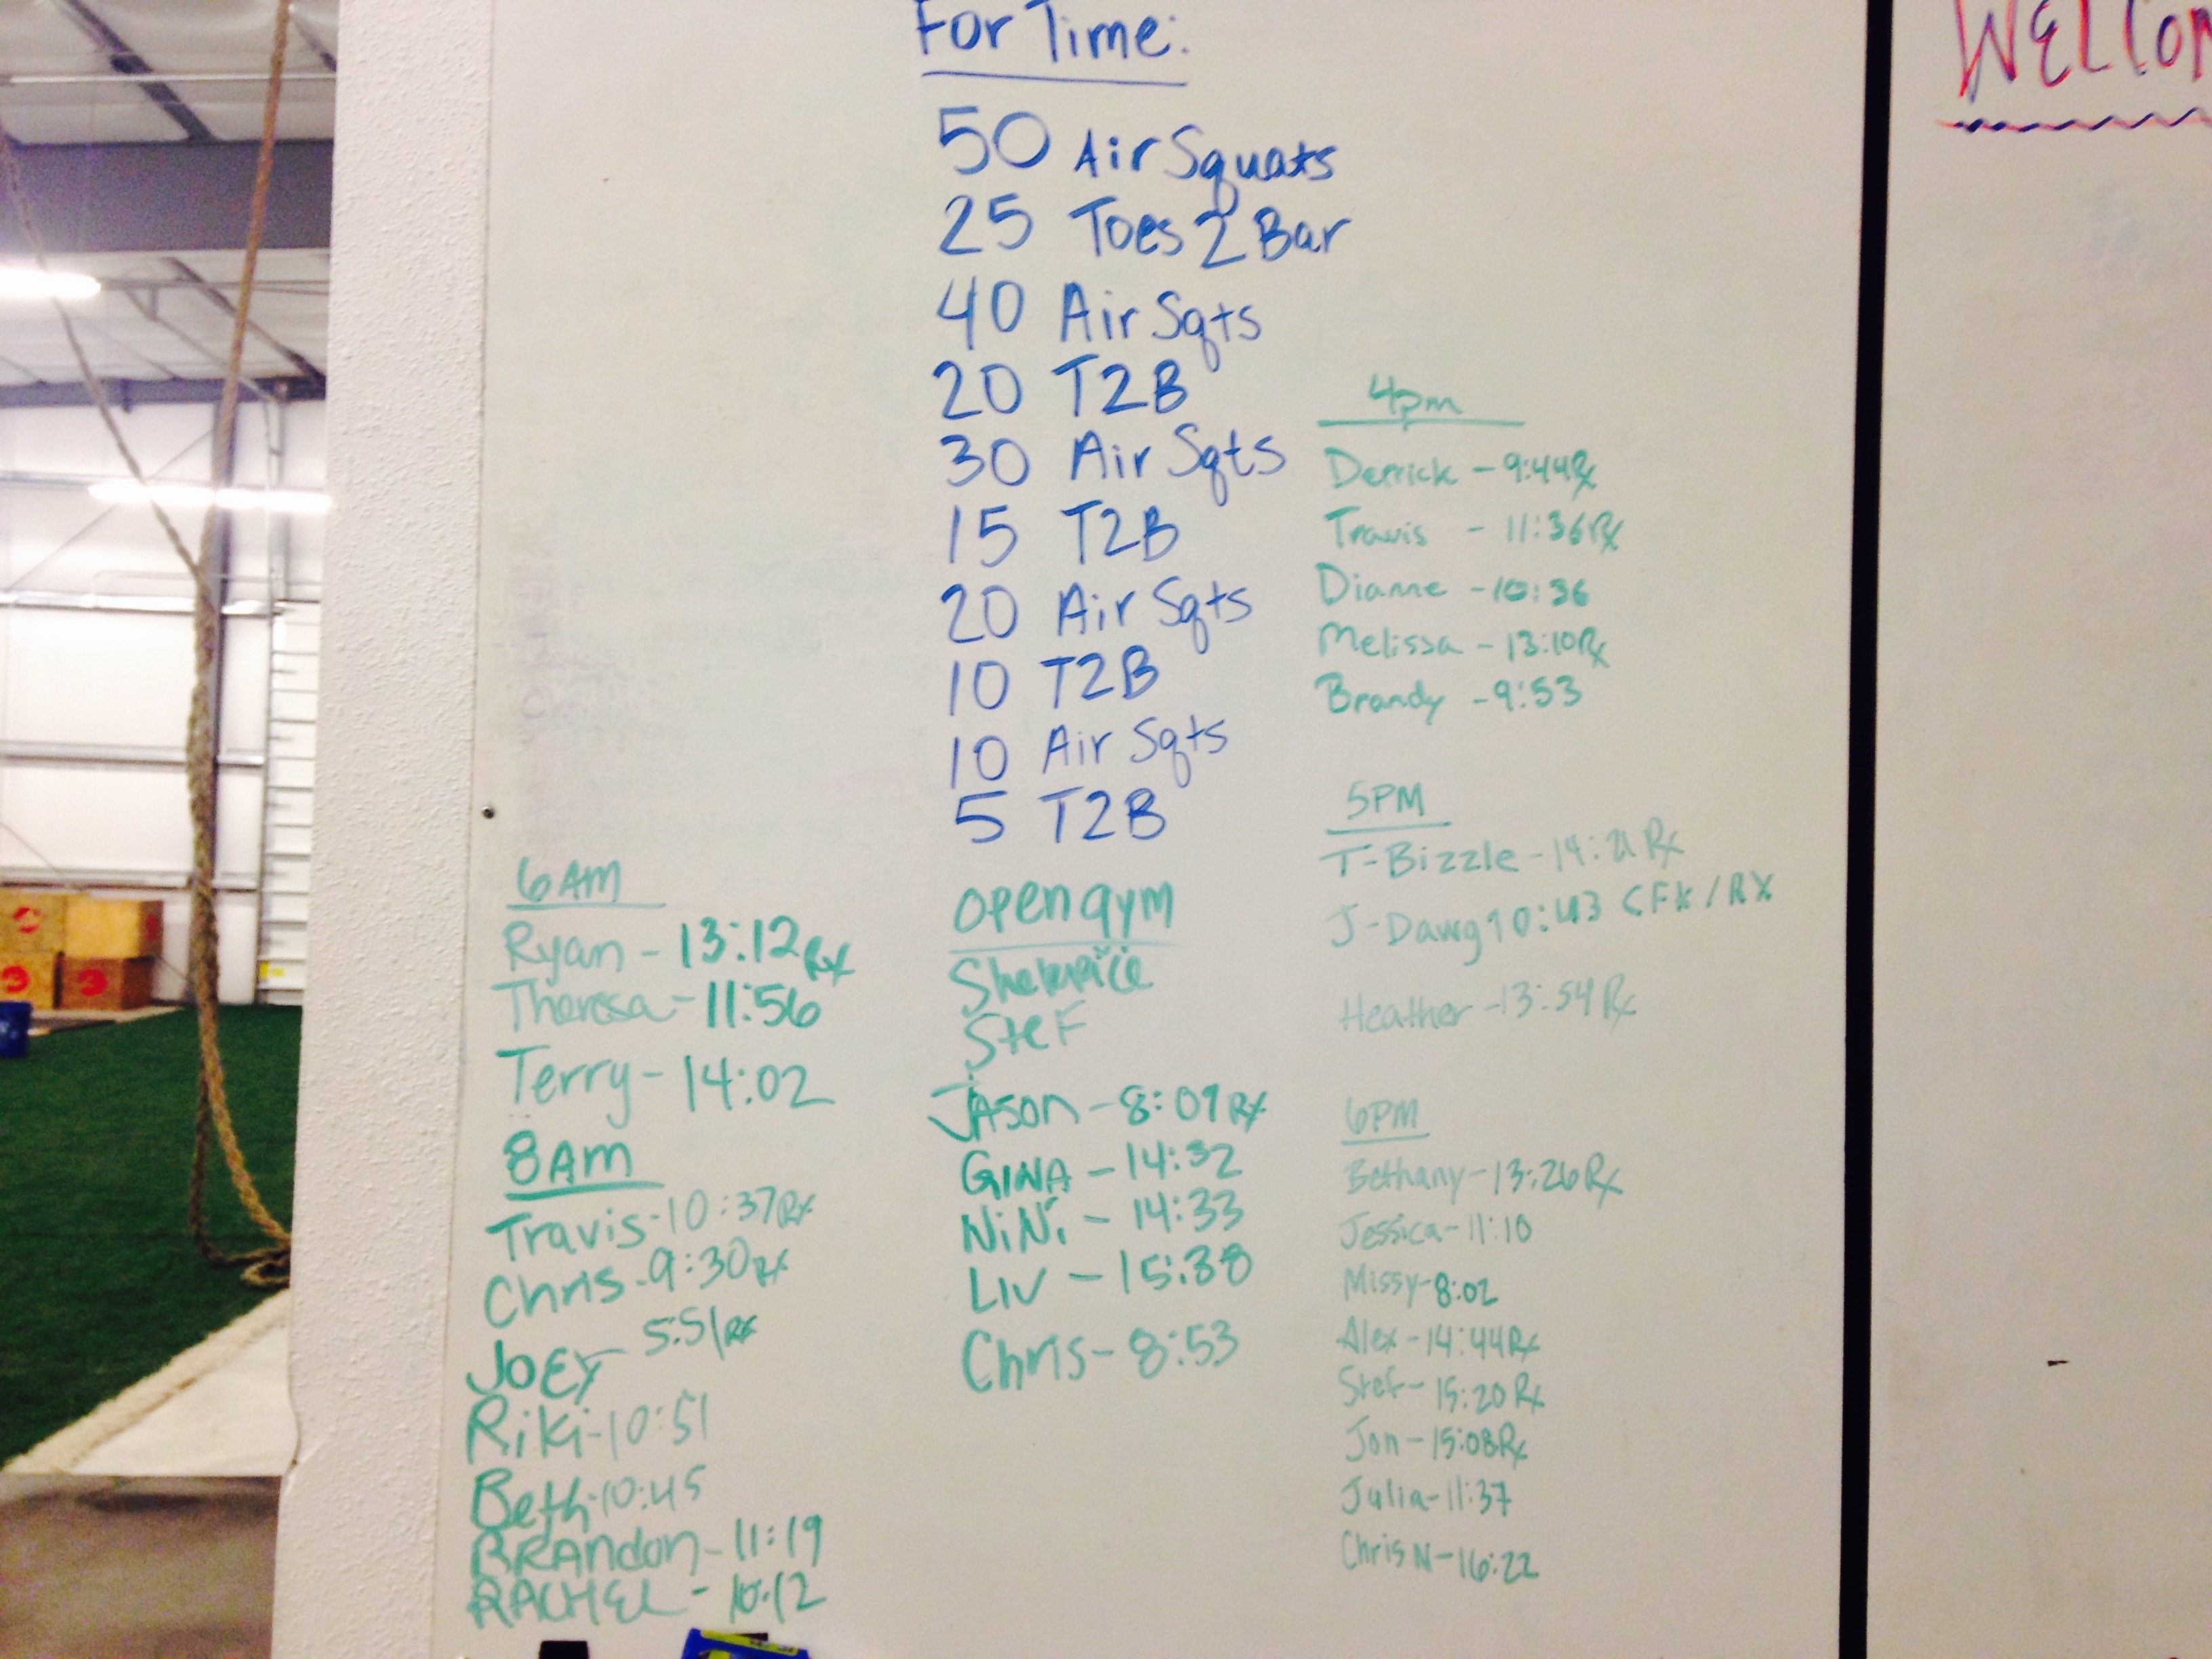 For Time:
50 Air Squats
25 Toes 2 Bar
40 Air Sqts
20 T2B
30 Air Sqts
15 T2B
20 Air Sqts
10 T2B
10 Air Sqts
5 T2B
6AM
Ryan - 13:12 Rx
Theresa - 11:56
Terry - 14:02
8AM
Travis - 10:37 Rx
Chris - 9:30 Rx
JOEY - 5:51 Rx
Riki - 10:51
Beth - 10:45
BRANDON - 11:19
RACHEL - 10:12
open gym
Stef
JASON - 8:09 Rx
GINA - 14:32
NiNi - 14:33
LIV - 15:38
Chris - 8:53
4pm
Derrick - 9:44 Rx
Travis - 11:36 Rx
Dianne - 10:36
Melissa - 13:10 Rx
Brandy - 9:53
5PM
T-Bizzle - 14:21 Rx
J-Dawg 10:43 CFK / RX
Heather - 13:54 Rx
6PM
Bethany - 13:26 Rx
Jessica - 11:10
Missy - 8:02
Alex - 14:44 Rx
Stef - 15:20 Rx
Jon - 15:08 Rx
Julia - 11:37
Chris N - 16:22